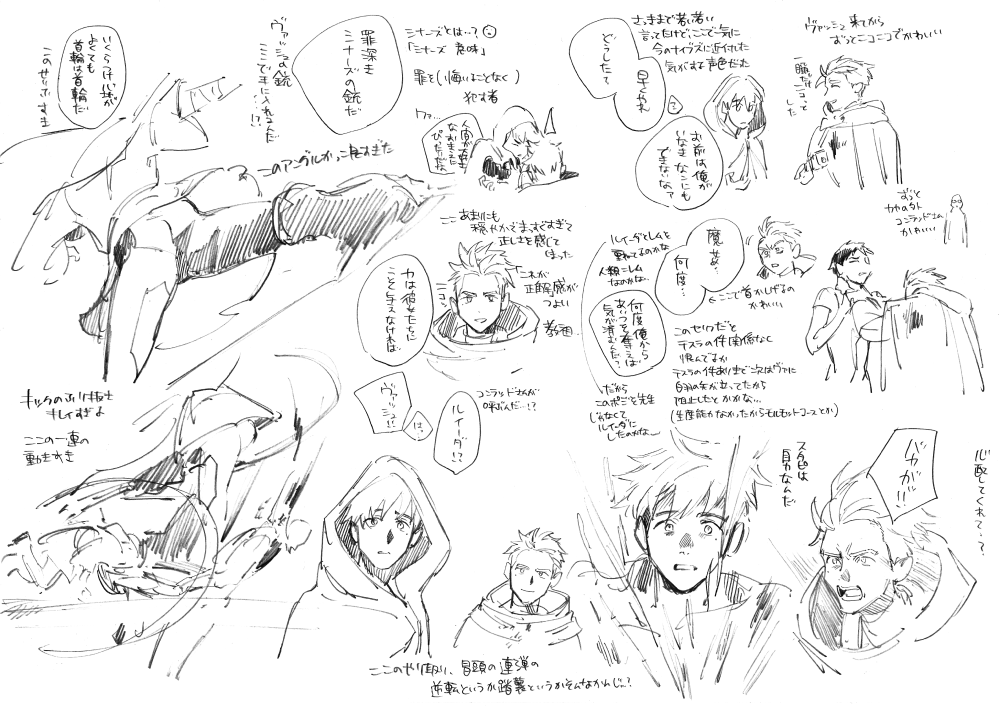 ヴァッシュ来てから
ずっとニコニコでかわいい
一瞬だけニコっと
した
さっきまで若い若い
言ってたけどここで一気に
今のナイヴズに近付いた
気がする声色だった
どうしたて
早くやれ
?
お前は俺が
いなきゃなにも
できないな?
シナーズとは…?
「シナーズ 意味」
罪を(悔いることなく)
犯す者
ヴァ…
罪深き
シナーズの銃だ
ヴァッシュの銃
ここで手に入れるんだ
…!?
いくらつけ心地が
よくても
首輪は首輪だ
このセリフすき
このアングルかっこ良すぎた
ずっと
コンラッドさん
かわいい
ここ
あまりにも
穏やかでまっすぐすぎて
正しさを感じて
しまった
これが
正解感が
つよい
教祖…
ニコッ
力は彼女たちに
こそ与えなければ
ルイーダとレムを
重ねてるのかな
人類=レム
なのかな…
魔女め…
何度…
何度俺から
あいつを奪えば
気が済むんだ?
←ここで首かしげるの
かわいい
このセリフだと
テスラの件関係なく
恨んでるか
テスラの件ありきで次はヴァに
白羽の矢が立ってたから
阻止したとかかな…
(生産能力なかったからモルモットコースとか)
だから
このポジを先生
じゃなくて
ルイーダに
したのかな〜
コンラッドさんが
呼ぶんだ…!?
ヴァッシュ!?
はっ
ルイーダ!?
キレイすぎよ
ここの一連の
動きすき
スタンピは
自力なんだ
バカが!!
心配してくれて…?
ここのやり取り、冒頭の連弾の
逆転というか踏襲というかそんなかんじ…?